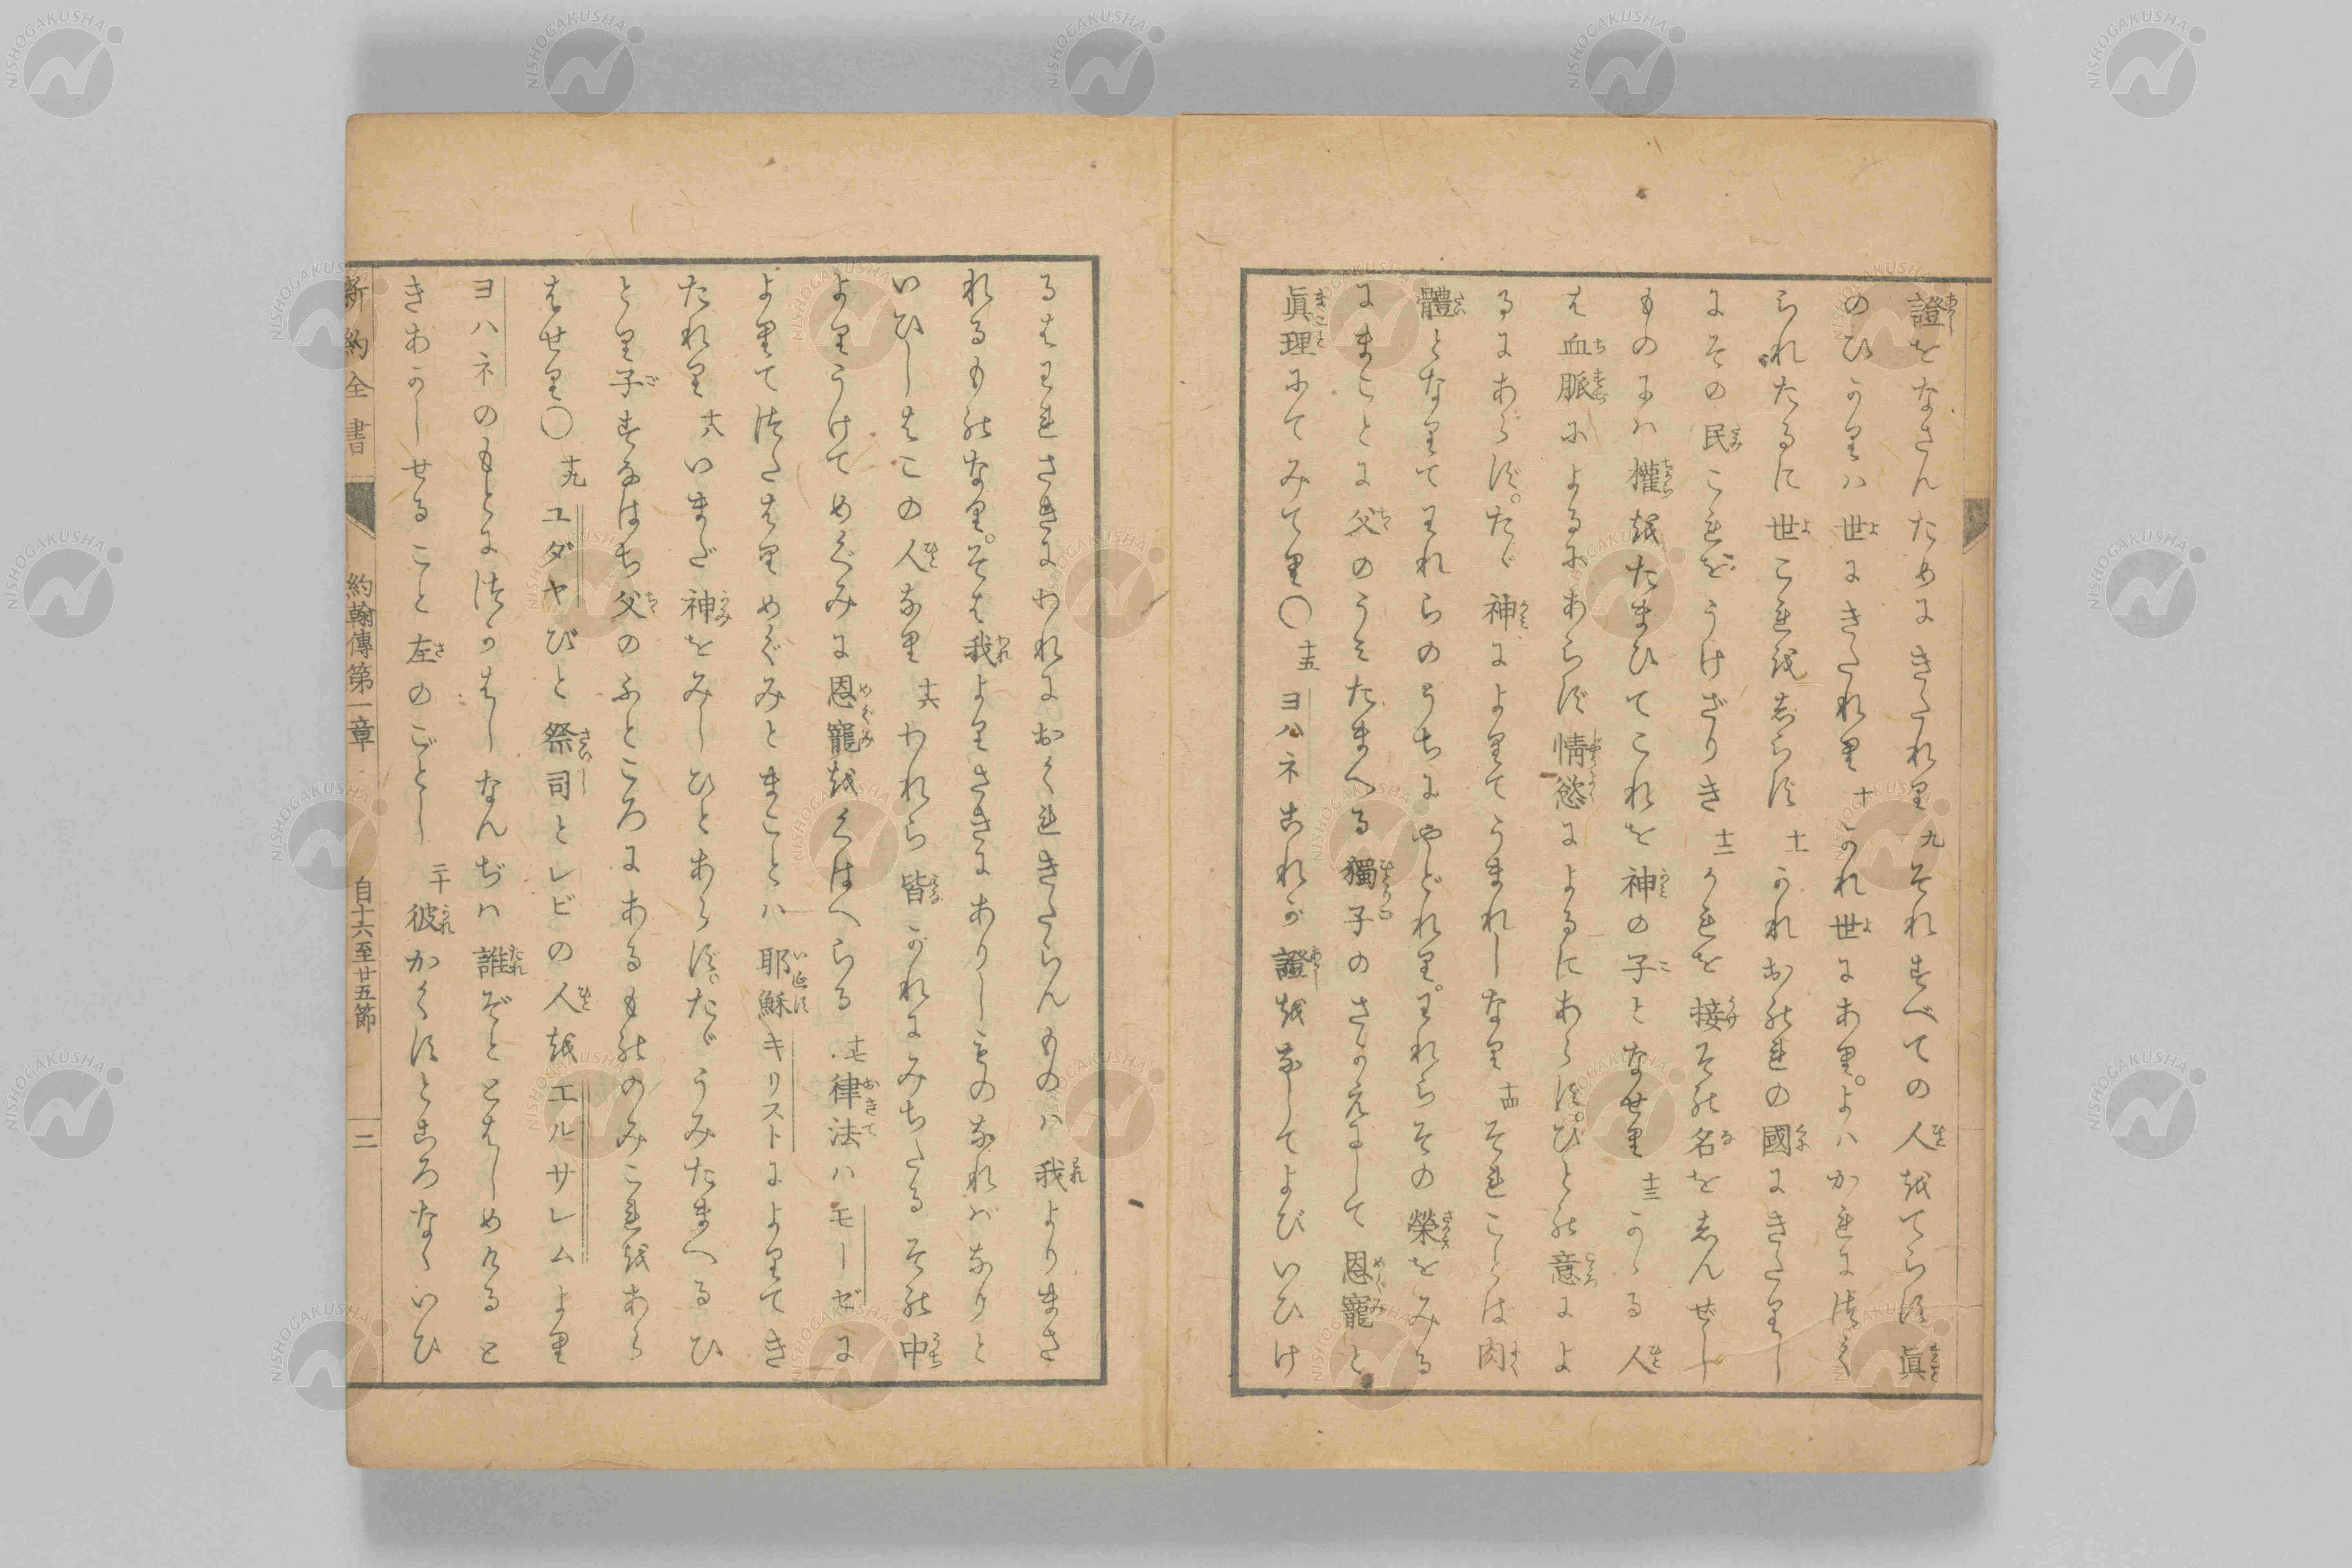 證をなさんためにきたれり九それすべての人をてらす眞
のひかりハ世にきたれり十かれ世にあり。よハかれにつく
られたるに世これをしらず十一かれおのれの國にきたりし
にその民これをうけざりき十二かれを接その名をしんぜし
ものにハ權をたまひてこれを神の子となせり十三かゝる人
は血脈によるにあらず情慾によるにあらず。ひとの意によ
るにあらず。たゞ神によりてうまれしなり十四それことば肉
體となりてわれらのうちにやどれり。われらその榮をみる
にまことに父のうみたまへる獨子のさかえにして恩寵と
眞理にてみてり〇十五ヨハネこれが證をなしてよびいひけ
るはわれさきにわれにおくれきたらんものハ我よりまさ
れるものなり。そは我よりさきにありしものなればなりと
いひしはこの人なり十六われら皆かれにみちたるその中
よりうけてめぐみに恩寵をくはへらる十七律法ハモーゼに
よりてつたはりめぐみとまことハ耶穌キリストによりてき
たれり十八いまだ神をみしひとあらず。たゞうみたまへるひ
とり子すなはち父のふところにあるもののみこれをあら
はせり〇十九ユダヤびと祭司とレビの人をエルサレムより
ヨハネのもとにつかはしなんぢハ誰ぞととはしめけると
きあかしせること左のごとし二十彼かくすところなくいひ
新約全書 約翰傳第一章 自十六至廿五節 二
NISHOGAKUSHA